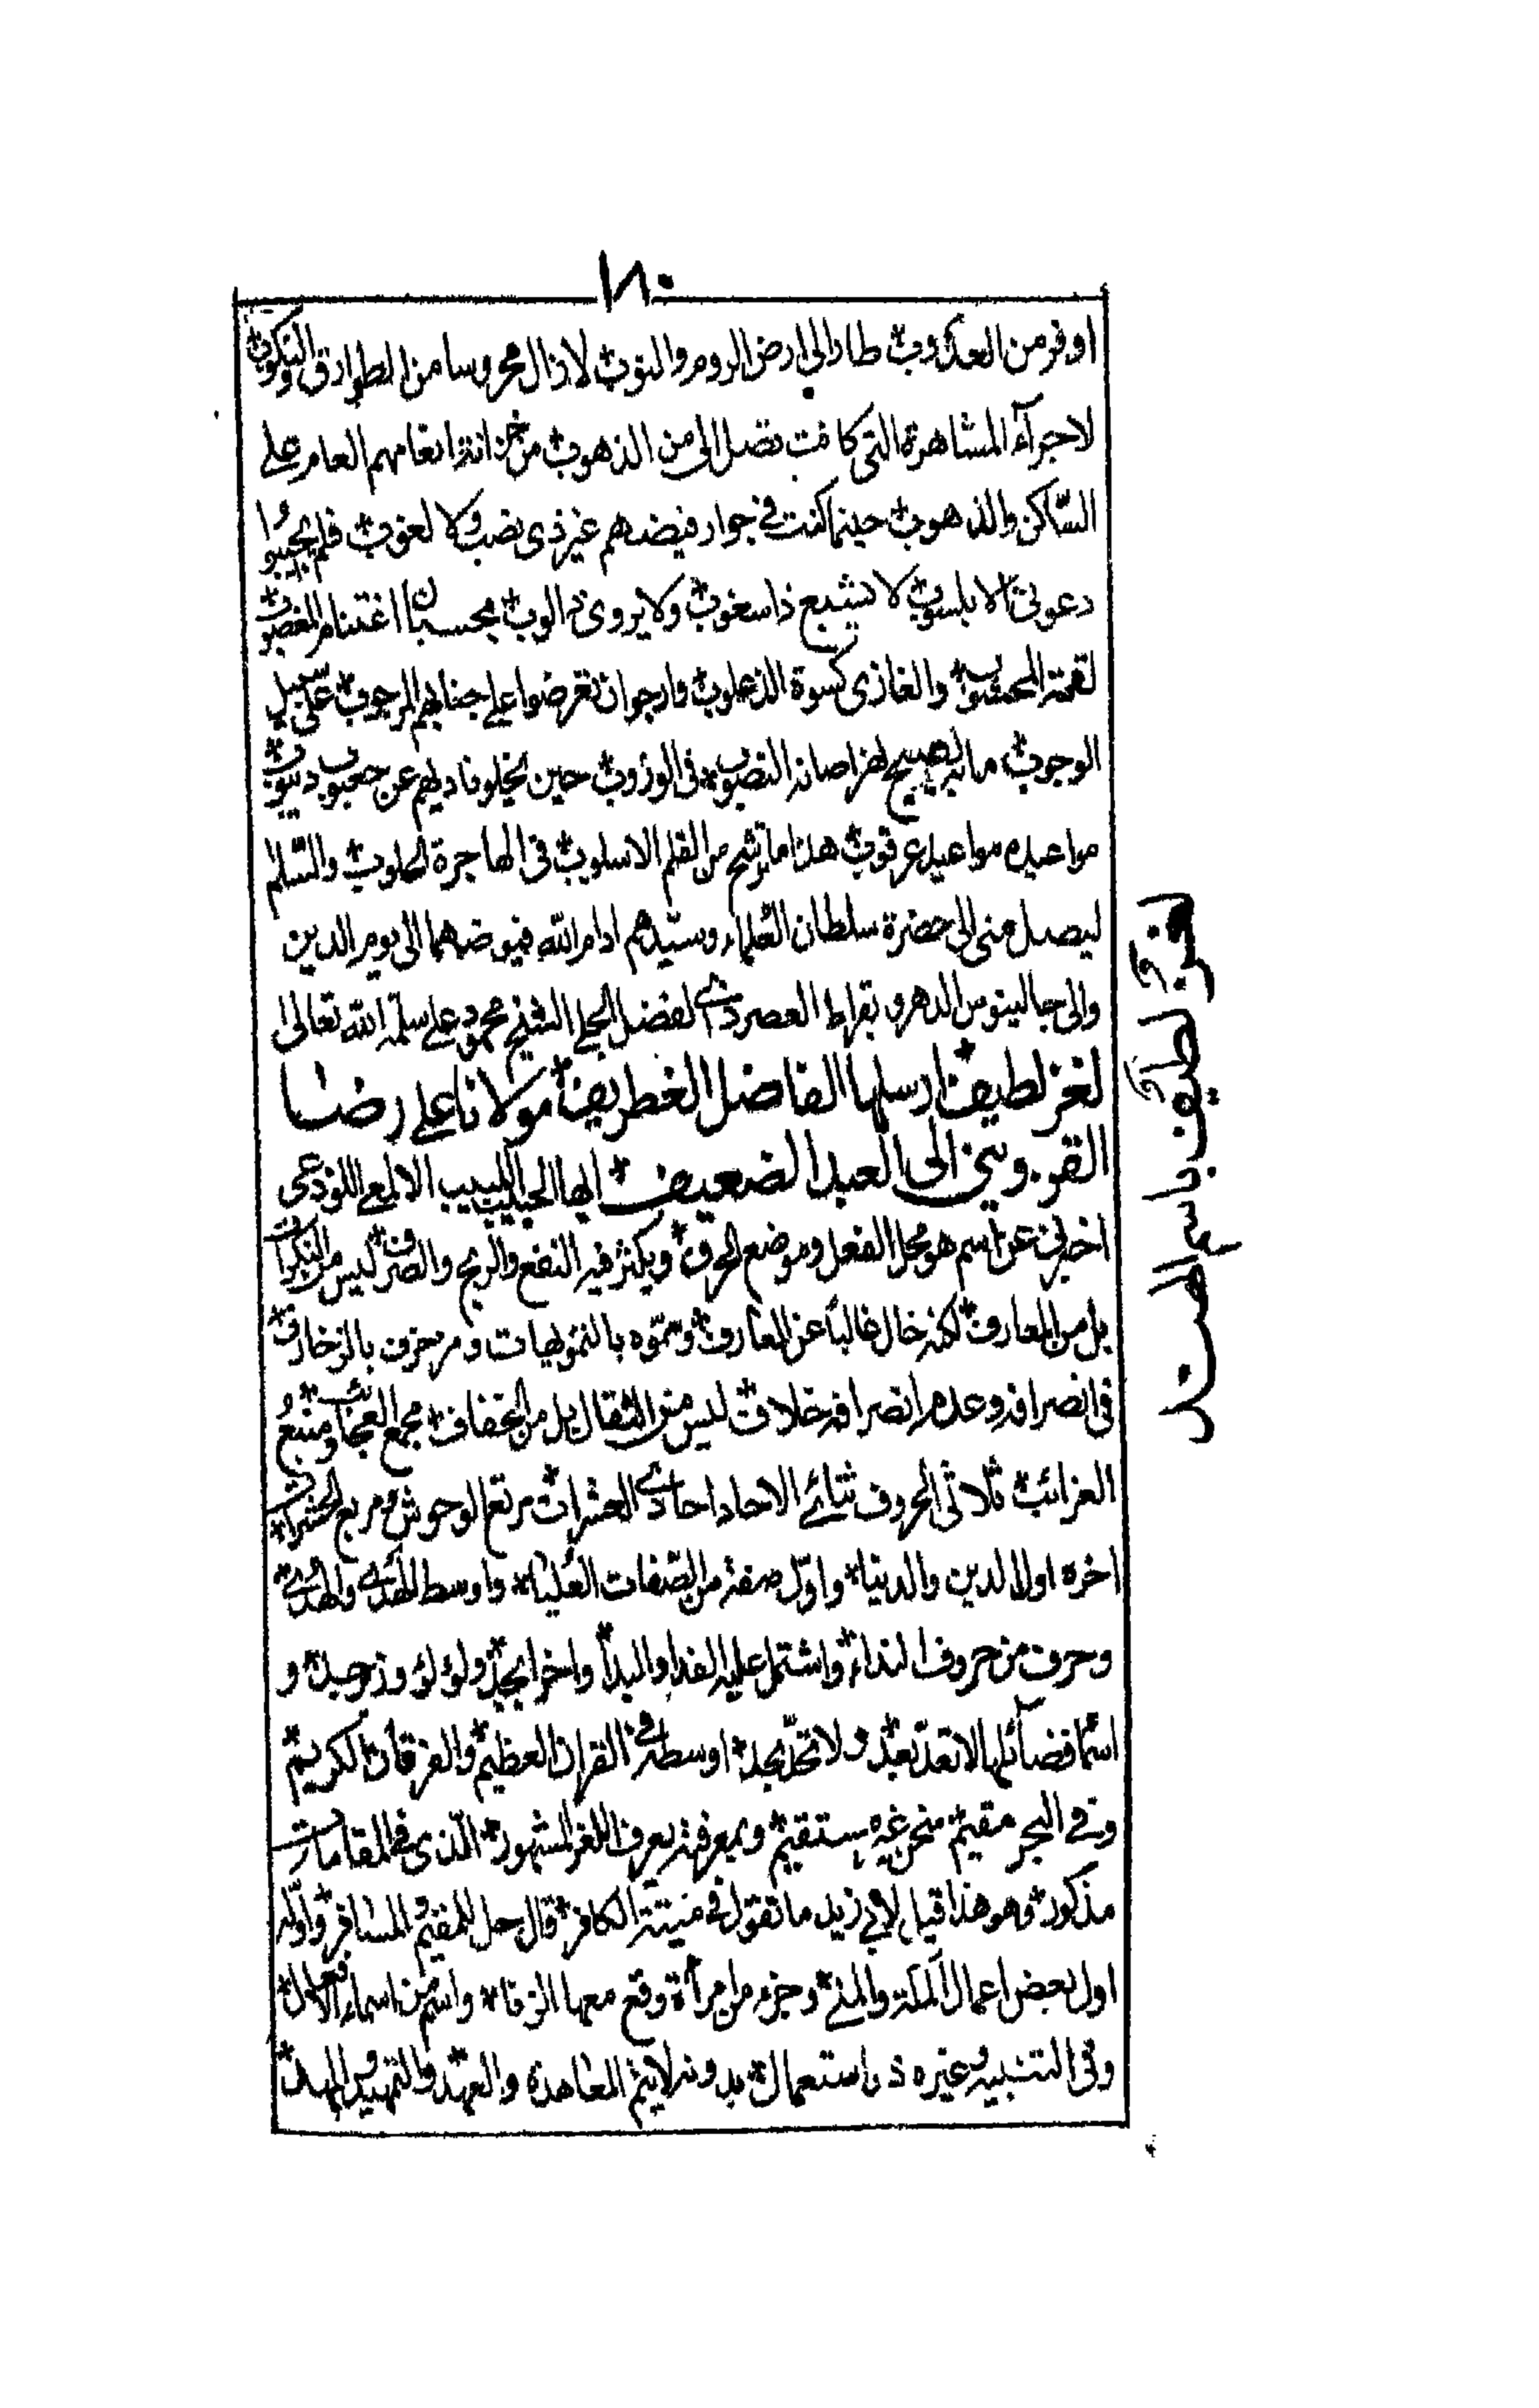 ١٨٠
اوفر من العذوب طار الى ارض الروم والنوب لا زال محروسا من الطوارق والنكوب
لاجرآء المشاهرة التى كانت تصل الى من الذهوب من خزانة انعامهم العام على
الساكن والذهوب حينما كنت فى جوار فيضهم غير ذى نصب ولا لغوب فلم يجيبوا
دعوتى الا بلسوب لا يشبع ذا سغوب ولا يروى ذا لوب يحسبان اغتنام المغصوب
لقمة المحسوب والغازى كسوة الذعلوب وارجوا ان تعرضوا على جنابهم المرجوب على سبيل
الوجوب ما به يصيح لغراصانه النضوب فى الوزوب حين يخلو ناديهم عن جعبوب ديبوب
مواعيده مواعيد عرقوب هذا ما ترشح من القلم الاسلوب فى الهاجرة الحلوب والسلام
ليصل منى الى حضرة سلطان العلماء وسيدهم ادام الله فيوضهما الى يوم الدين
والى جالينوس الدهر وبقراط العصر ذى الفضل الجلى الشيخ محمود على سلمه الله تعالى
لغز لطيف ارسلها الفاضل الغطريف مولانا على رضا
القزوينى الى العبد الضعيف ايها الحبيب اللبيب الالمعى اللوذعى
اخبرنى عن اسم هو محل الفعل وموضع الحرف ويكثر فيه النفع والربح والصرف ليس من النكرات
بل من المعارف لكنه خال غالبا عن المعارف ومموه بالتمويهات ومزخرف بالزخارف
فى انصرافه وعدم انصرافه خلاف ليس من الثقال بل من الخفاف مجمع العجائب ومنبع
الغرائب ثلاثى الحروف ثنائى الاحاد احادى العشرات مرتع الوحوش ومربع الحشرات
اخره اول الدين والدنيا واول صفة من الصفات العليا واوسط الهدى والهدى
وحرف من حروف النداء واشتمل عليه الفدا والبدأ واخر ابجد ولؤلؤ وزجيد و
اسما فضائلها لا تعد بعد ولا تحد بحد اوسطه فى القران العظيم والفرقان الكريم
وفى البحر مقيم منحن غير مستقيم وبمعرفته يعرف اللغز المشهور الذى فى المقامات
مذكور وهو هذا قيل لابى زيد ما تقول فى ميتة الكافر قال حل للمقيم والمسافر واوله
اول بعض اعمال المكة والمنى وجزء من امرأة وقع معها الزفا واسم من اسماء الافعال
وفى التنبيه وغيره ذا استعمال بدونه لا يتم المعاهدة والعهد والتمهيد والمهد
لغز لطيف باسم الهند